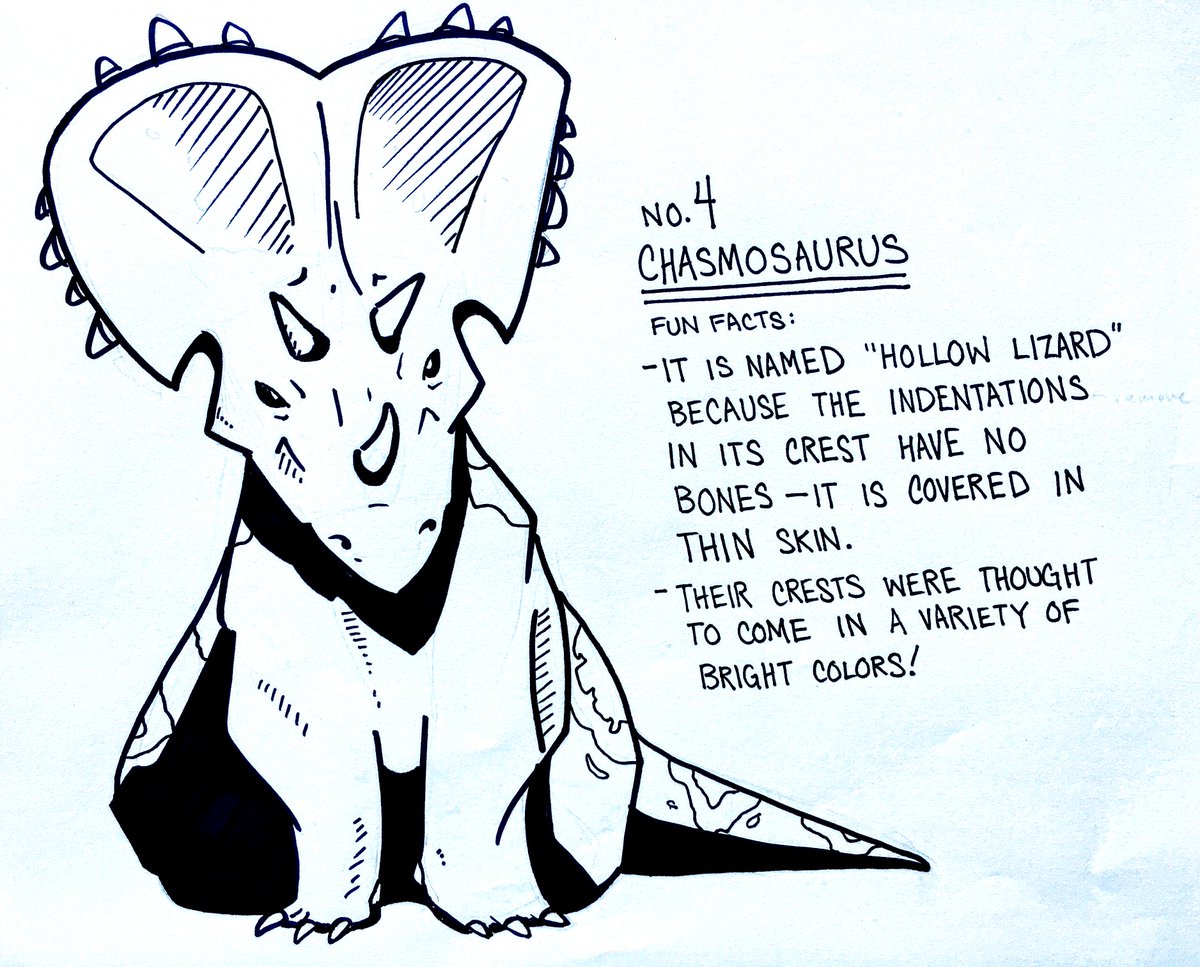 NO. 4
CHASMOSAURUS
FUN FACTS:
-IT IS NAMED "HOLLOW LIZARD"
BECAUSE THE INDENTATIONS
IN ITS CREST HAVE NO
BONES - IT IS COVERED IN
THIN SKIN.
- THEIR CRESTS WERE THOUGHT
TO COME IN A VARIETY OF
BRIGHT COLORS!